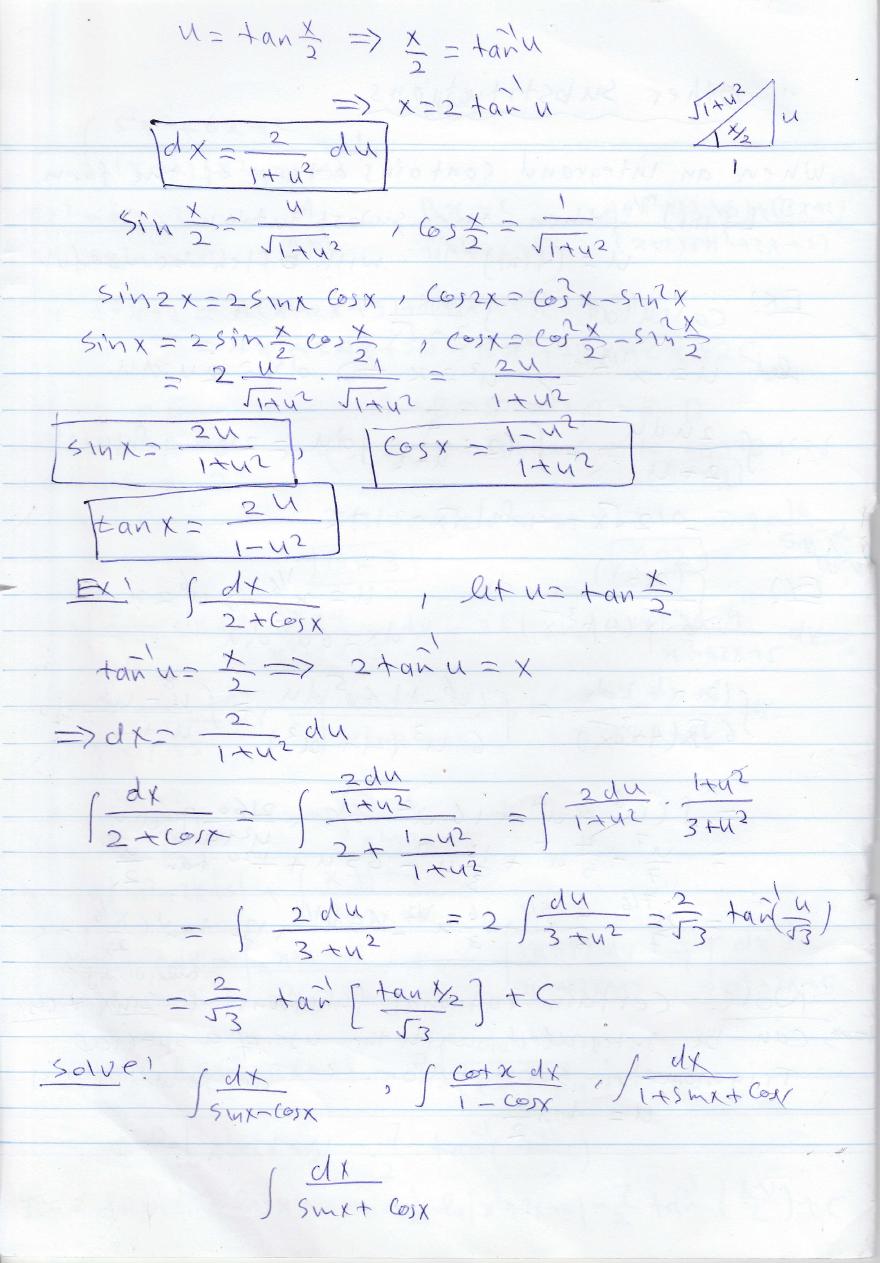 u = tan x/2 ⇒ x/2 = tan⁻¹u
⇒ x = 2 tan⁻¹u
√1+u² u x/2 1
dx = 2/(1+u²) du
Sin x/2 = u/√(1+u²) , Cos x/2 = 1/√(1+u²)
Sin2x = 2Sinx Cosx , Cos2x = Cos²x − Sin²x
Sinx = 2Sin x/2 Cos x/2 , Cosx = Cos² x/2 − Sin² x/2
= 2 u/√(1+u²) · 1/√(1+u²) = 2u/(1+u²)
Sinx = 2u/(1+u²) , Cosx = (1−u²)/(1+u²)
tanx = 2u/(1−u²)
EX! ∫ dx/(2+Cosx) , let u = tan x/2
tan⁻¹u = x/2 ⇒ 2tan⁻¹u = x
⇒ dx = 2/(1+u²) du
∫ dx/(2+Cosx) = ∫ (2du/(1+u²))/(2 + (1−u²)/(1+u²)) = ∫ 2du/(1+u²) · (1+u²)/(3+u²)
= ∫ 2du/(3+u²) = 2 ∫ du/(3+u²) = 2/√3 tan⁻¹(u/√3)
= 2/√3 tan⁻¹[tan x/2 / √3] + C
Solve! ∫ dx/(Sinx−Cosx) , ∫ Cotx dx/(1−Cosx) , ∫ dx/(1+Sinx+Cosx)
∫ dx/(Sinx+Cosx)